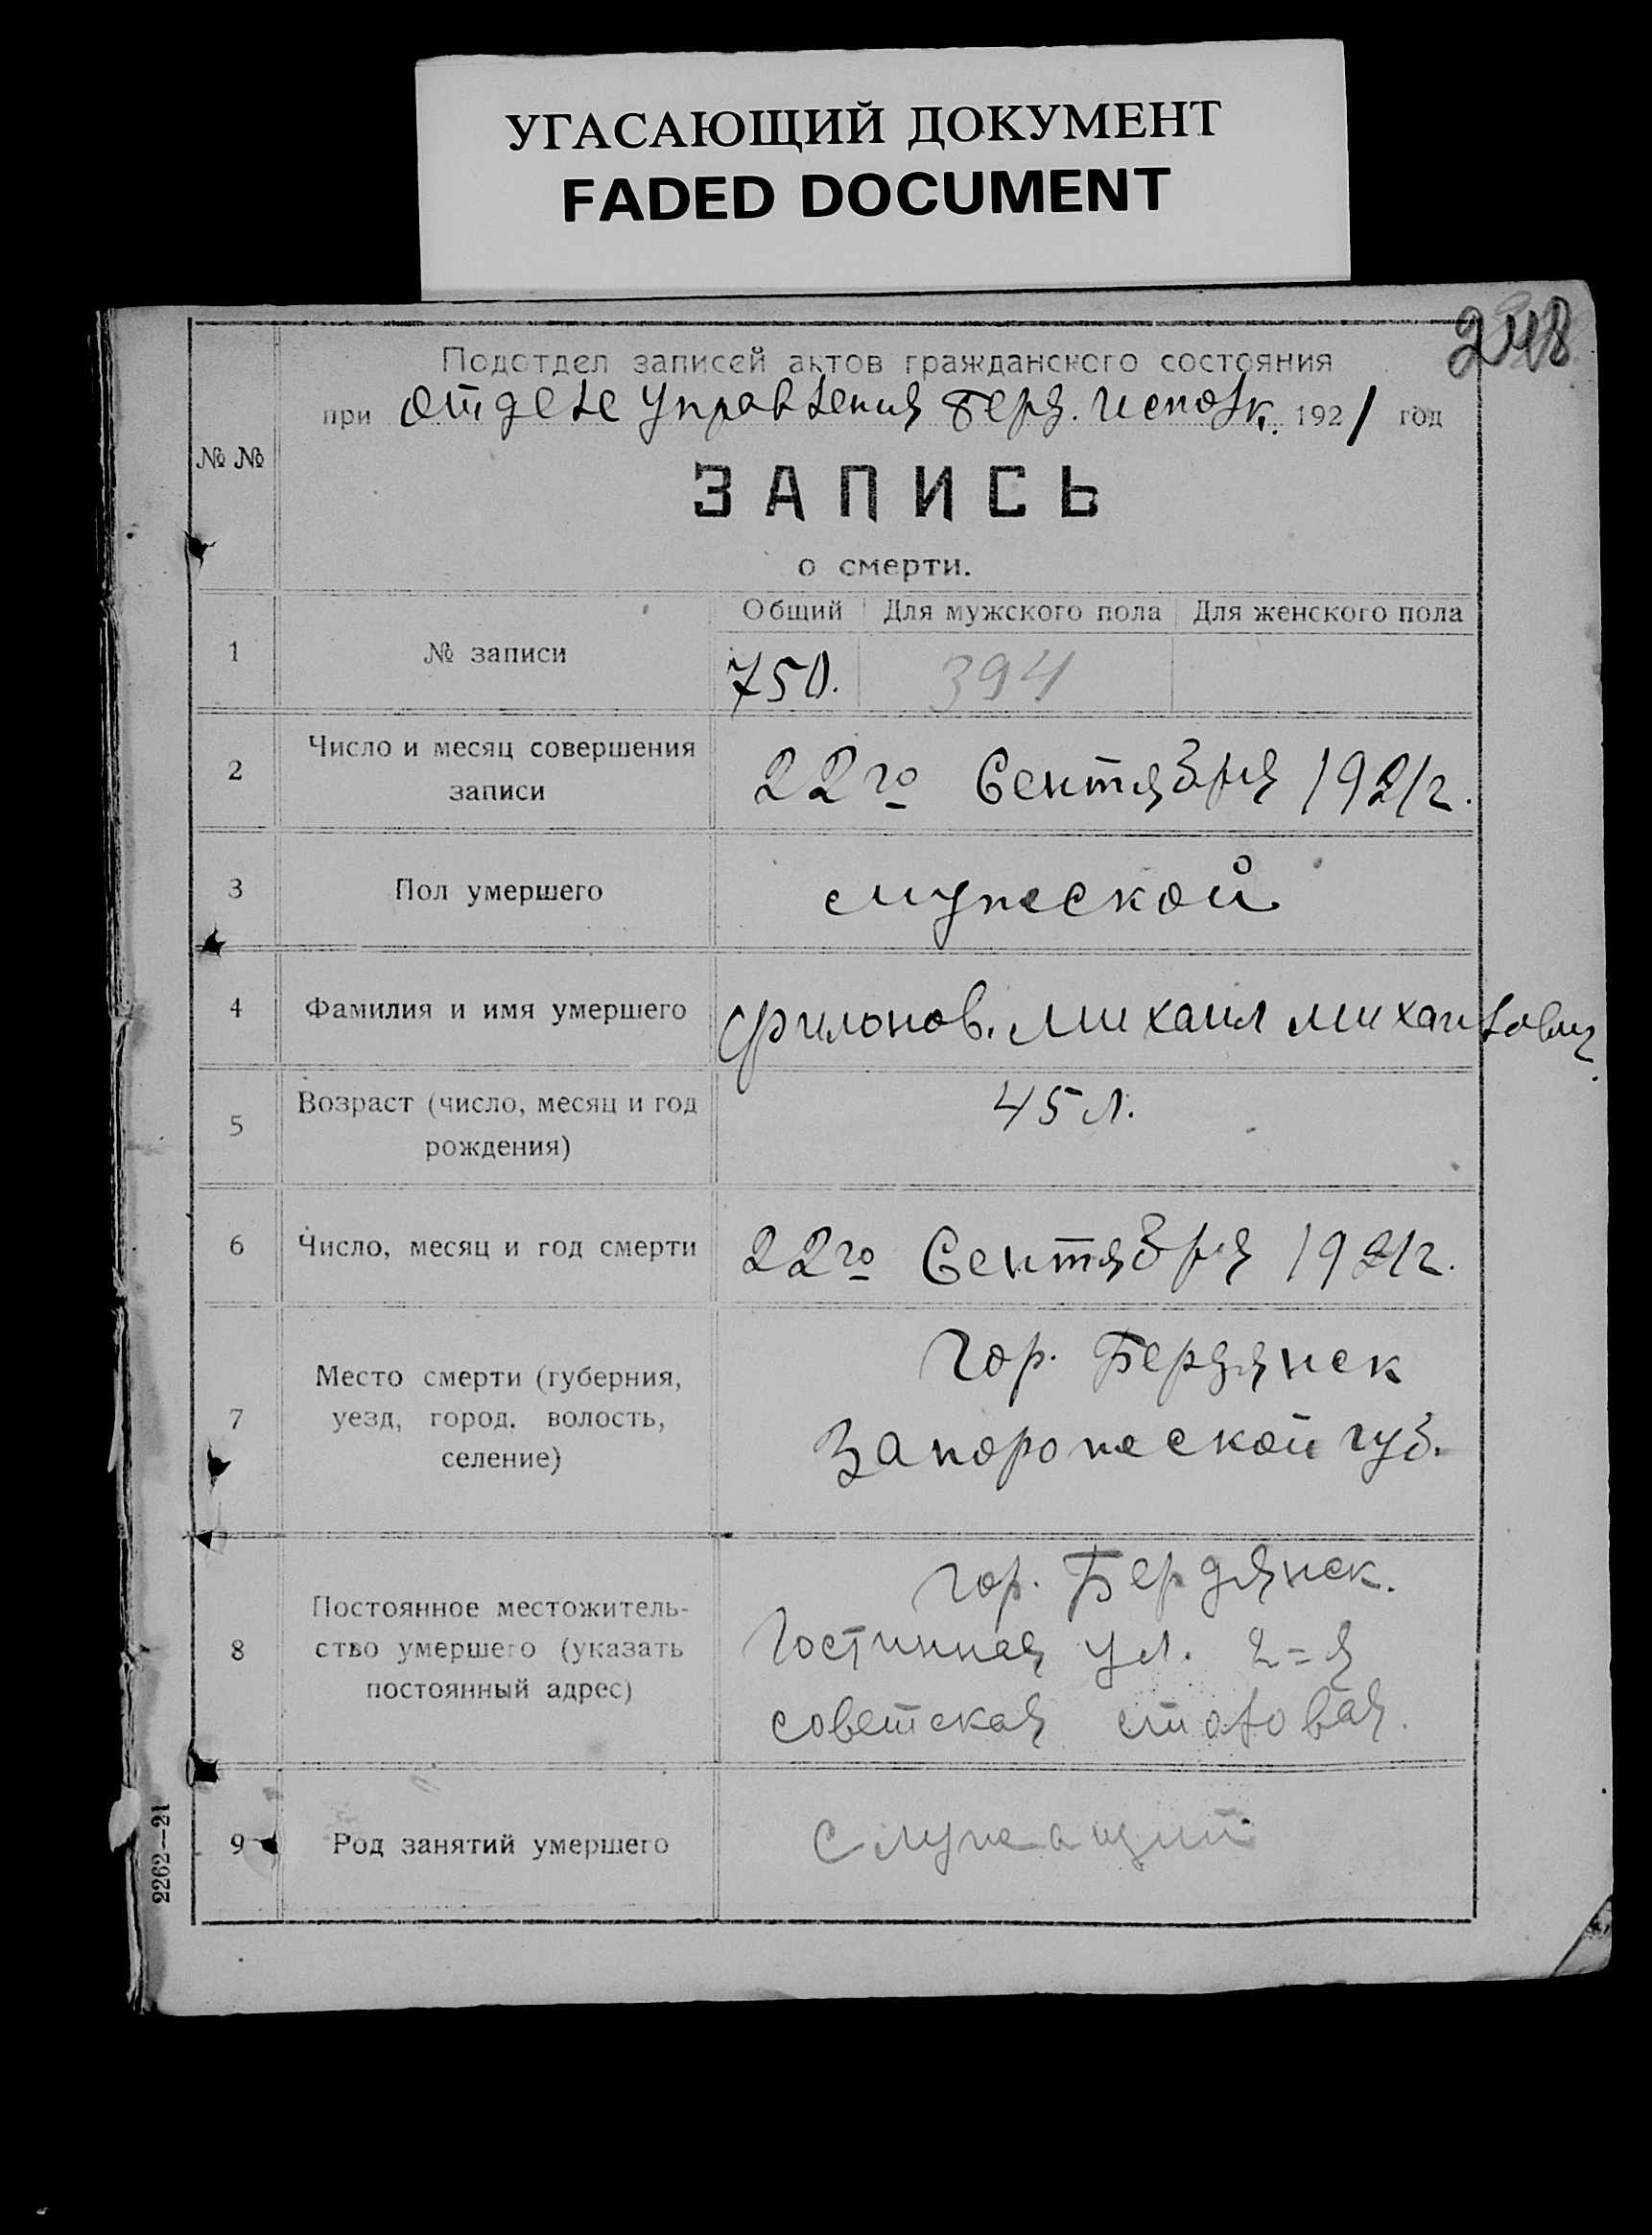 УГАСАЮЩИЙ ДОКУМЕНТ
FADED DOCUMENT
248
Подотдел записей актов гражданского состояния
при Отделе Управления Берд. Исполк. 1921 год
№ №
ЗАПИСЬ
о смерти.
Общий Для мужского пола Для женского пола
1 № записи 750. 394
2 Число и месяц совершения
записи
22го Сентября 1921г.
3 Пол умершего мужеской
4 Фамилия и имя умершего Филонов. Михаил Михайлович
5 Возраст (число, месяц и год
рождения)
45 л.
6 Число, месяц и год смерти 22го Сентября 1921г.
7 Место смерти (губерния,
уезд, город, волость,
селение)
Гор. Бердянск
Запорожеской губ.
8 Постоянное местожитель-
ство умершего (указать
постоянный адрес)
гор. Бердянск.
Гостинная ул. 2=я
советская столовая.
9 Род занятий умершего служащий
2262—21